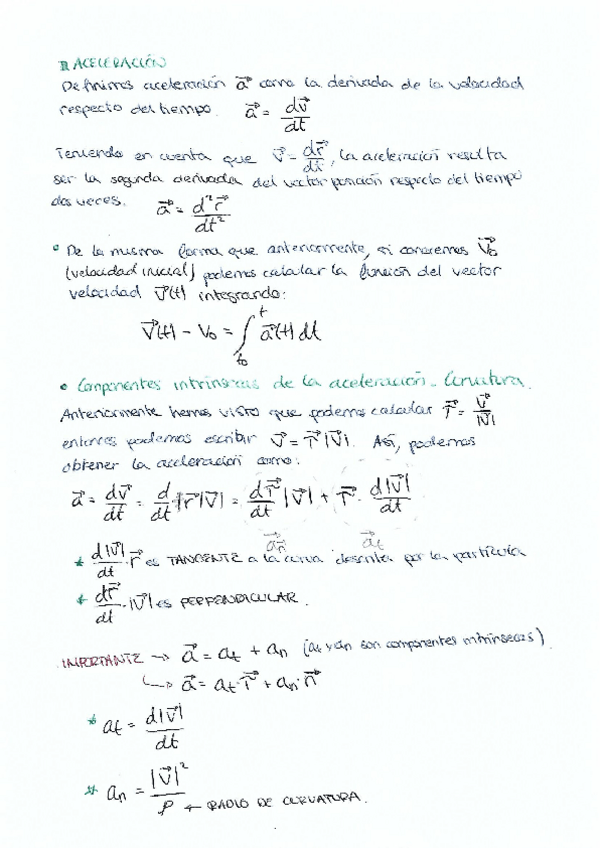 ACELERACIÓN
Definimos aceleración a⃗ como la derivada de la velocidad
respecto del tiempo. a⃗ = dv⃗/dt
Teniendo en cuenta que v⃗ = dr⃗/dt, la aceleración resulta
ser la segunda derivada del vector posición respecto del tiempo
dos veces. a⃗ = d²r⃗/dt²
• De la misma forma que anteriormente, si conocemos V⃗₀
(velocidad inicial) podemos calcular la función del vector
velocidad v⃗(t) integrando:
v⃗(t) - V₀ = ∫ₜ₀ᵗ a⃗(t) dt
• Componentes intrínsecas de la aceleración. Curvatura.
Anteriormente hemos visto que podemos calcular τ⃗ = v⃗/|v⃗|
entonces podemos escribir v⃗ = τ⃗ |v⃗|. Así, podemos
obtener la aceleración como:
a⃗ = dv⃗/dt = d/dt τ⃗|v⃗| = dτ⃗/dt |v⃗| + τ⃗ · d|v⃗|/dt
a⃗n a⃗t
* d|v⃗|/dt · τ⃗ es TANGENTE a la curva descrita por la partícula
* dτ⃗/dt · |v⃗| es PERPENDICULAR.
IMPORTANTE → a⃗ = at + an (at y an son componentes intrínsecas)
↳ a⃗ = at · τ⃗ + an · n⃗
* at = d|v⃗|/dt
* an = |v⃗|²/ρ ← RADIO DE CURVATURA.